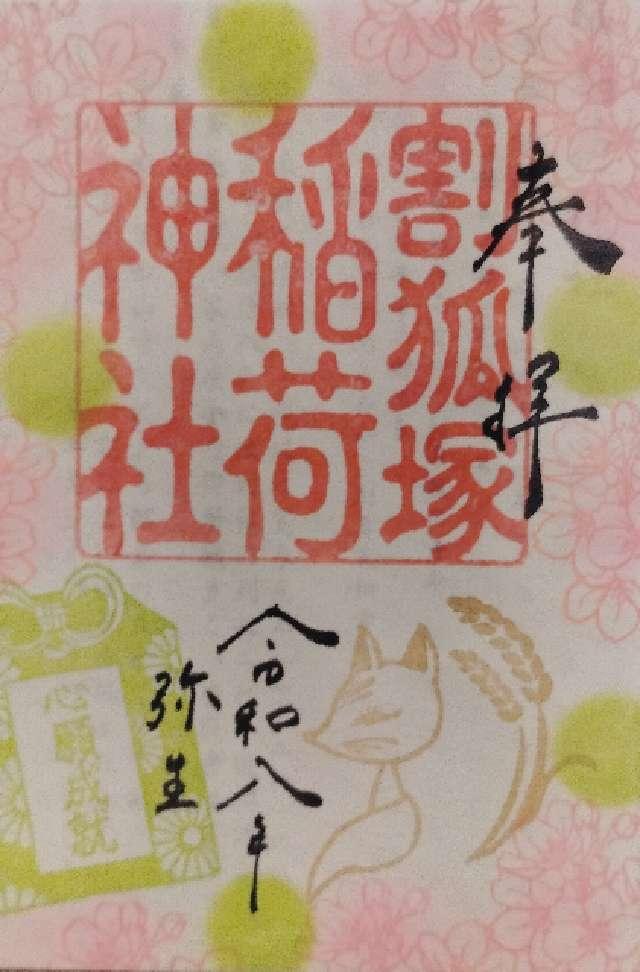 奉拝
割狐塚
稲荷
神社
令和八年
弥生
心願成就